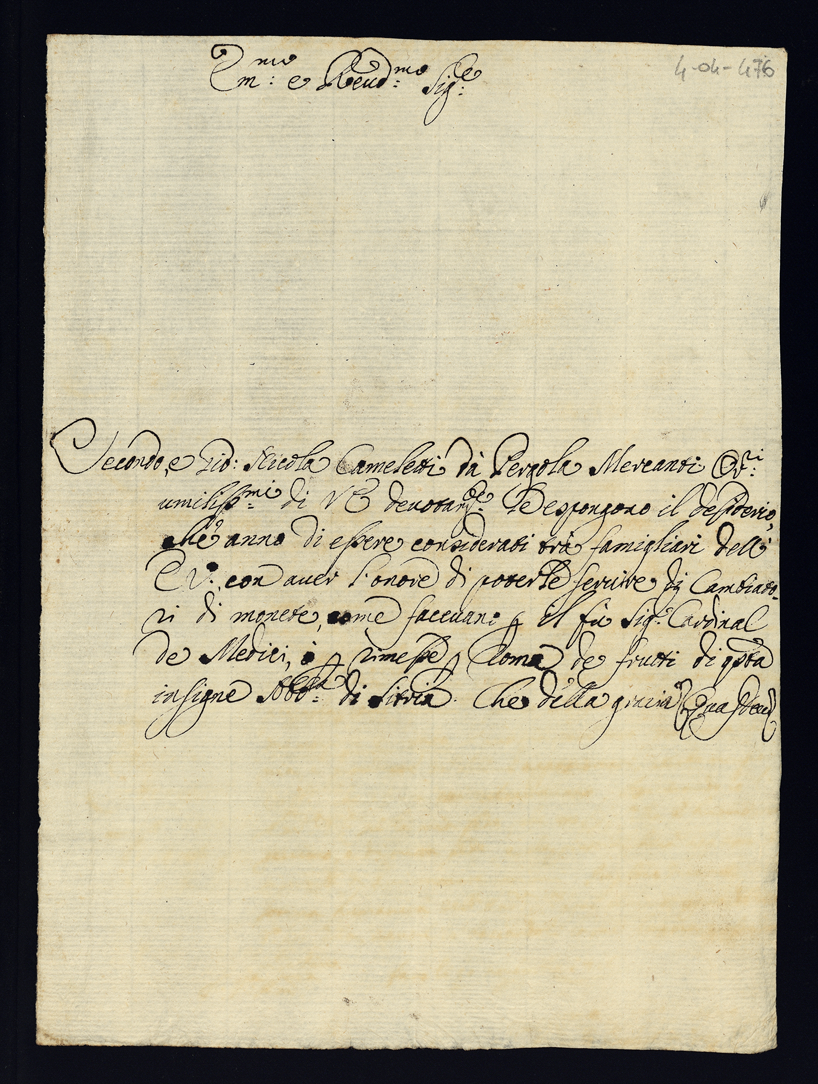 Em.mo e Reud.mo Sig.e
4-04-476
Secondo, e Gio: Nicola Cameletti da Pergola Mercanti Or.ri
umiliss.mi di VE deuotam.te Le espongono il desiderio,
che anno di essere considerati trà famigliari dell'
E V., con auer l'onore di poterLe seruire di Cambiato-
ri di monete, come faceuano p il fù Sig.e Cardinal
de Medici, ò p rimesse p Roma de frutti di qsta
insigne Abb.a di Sitria. Che della grazia